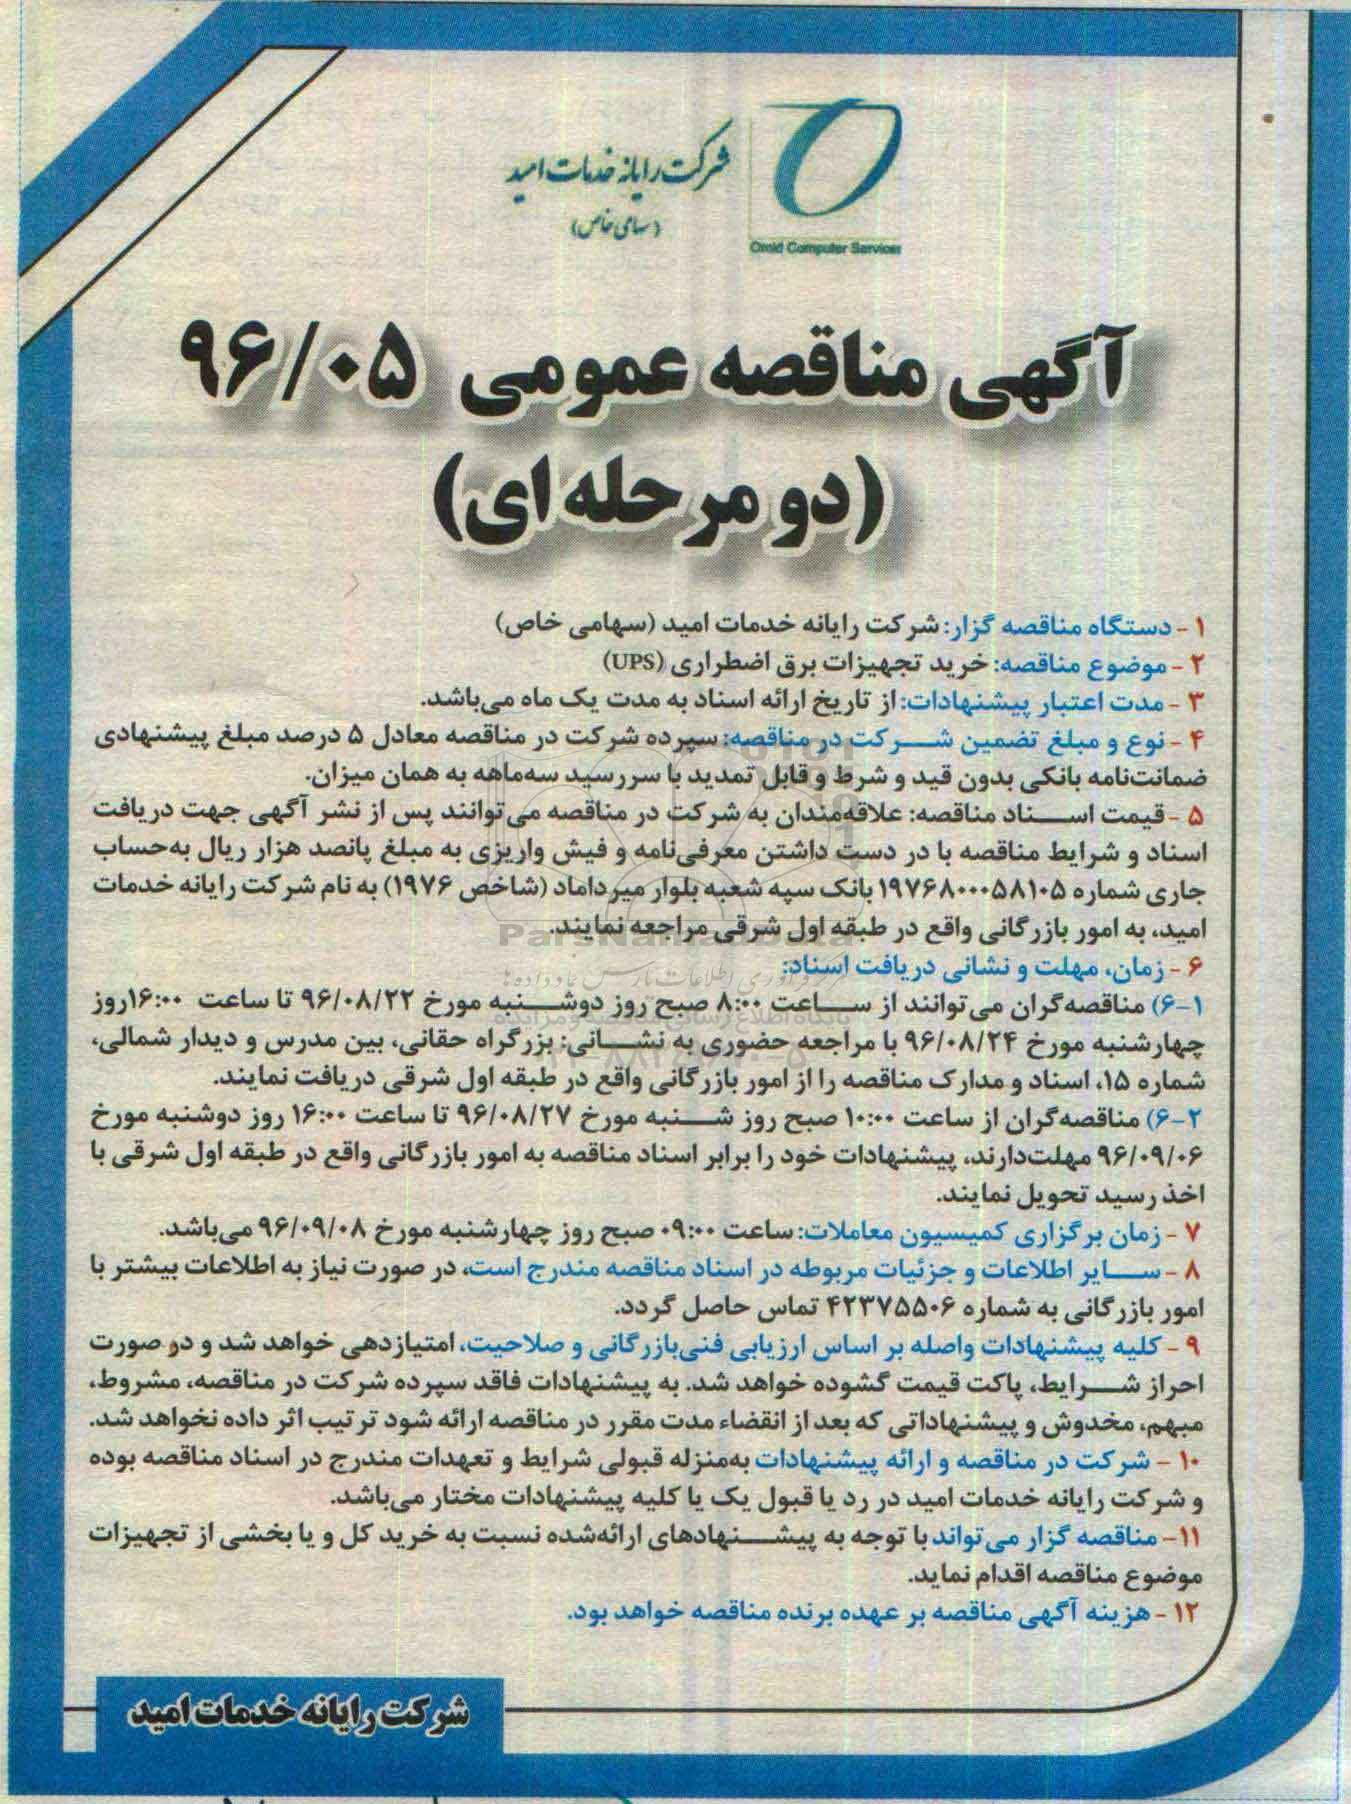 شرکت رایانه خدمات امید
(سهامی خاص)
Omid Computer Services
آگهی مناقصه عمومی ۹۶/۰۵
(دو مرحله ای)
۱ - دستگاه مناقصه گزار: شرکت رایانه خدمات امید (سهامی خاص)
۲ - موضوع مناقصه: خرید تجهیزات برق اضطراری (UPS)
۳ - مدت اعتبار پیشنهادات: از تاریخ ارائه اسناد به مدت یک ماه می‌باشد.
۴ - نوع و مبلغ تضمین شرکت در مناقصه: سپرده شرکت در مناقصه معادل ۵ درصد مبلغ پیشنهادی
ضمانت‌نامه بانکی بدون قید و شرط و قابل تمدید با سررسید سه‌ماهه به همان میزان.
۵ - قیمت اسناد مناقصه: علاقه‌مندان به شرکت در مناقصه می‌توانند پس از نشر آگهی جهت دریافت
اسناد و شرایط مناقصه با در دست داشتن معرفی‌نامه و فیش واریزی به مبلغ پانصد هزار ریال به‌حساب
جاری شماره ۱۹۷۶۸۰۰۰۵۸۱۰۵ بانک سپه شعبه بلوار میرداماد (شاخص ۱۹۷۶) به نام شرکت رایانه خدمات
امید، به امور بازرگانی واقع در طبقه اول شرقی مراجعه نمایند.
ParsNamadData
۶ - زمان، مهلت و نشانی دریافت اسناد:
۶-۱) مناقصه‌گران می‌توانند از ساعت ۸:۰۰ صبح روز دوشنبه مورخ ۹۶/۰۸/۲۲ تا ساعت ۱۶:۰۰ روز
چهارشنبه مورخ ۹۶/۰۸/۲۴ با مراجعه حضوری به نشانی: بزرگراه حقانی، بین مدرس و دیدار شمالی،
شماره ۱۵، اسناد و مدارک مناقصه را از امور بازرگانی واقع در طبقه اول شرقی دریافت نمایند.
۶-۲) مناقصه‌گران از ساعت ۱۰:۰۰ صبح روز شنبه مورخ ۹۶/۰۸/۲۷ تا ساعت ۱۶:۰۰ روز دوشنبه مورخ
۹۶/۰۹/۰۶ مهلت‌دارند، پیشنهادات خود را برابر اسناد مناقصه به امور بازرگانی واقع در طبقه اول شرقی با
اخذ رسید تحویل نمایند.
۷ - زمان برگزاری کمیسیون معاملات: ساعت ۰۹:۰۰ صبح روز چهارشنبه مورخ ۹۶/۰۹/۰۸ می‌باشد.
۸ - سایر اطلاعات و جزئیات مربوطه در اسناد مناقصه مندرج است، در صورت نیاز به اطلاعات بیشتر با
امور بازرگانی به شماره ۴۲۳۷۵۵۰۶ تماس حاصل گردد.
۹ - کلیه پیشنهادات واصله بر اساس ارزیابی فنی‌بازرگانی و صلاحیت، امتیازدهی خواهد شد و در صورت
احراز شرایط، پاکت قیمت گشوده خواهد شد. به پیشنهادات فاقد سپرده شرکت در مناقصه، مشروط،
مبهم، مخدوش و پیشنهاداتی که بعد از انقضاء مدت مقرر در مناقصه ارائه شود ترتیب اثر داده نخواهد شد.
۱۰ - شرکت در مناقصه و ارائه پیشنهادات به‌منزله قبولی شرایط و تعهدات مندرج در اسناد مناقصه بوده
و شرکت رایانه خدمات امید در رد یا قبول یک یا کلیه پیشنهادات مختار می‌باشد.
۱۱- مناقصه گزار می‌تواند با توجه به پیشنهادهای ارائه‌شده نسبت به خرید کل و یا بخشی از تجهیزات
موضوع مناقصه اقدام نماید.
۱۲ - هزینه آگهی مناقصه بر عهده برنده مناقصه خواهد بود.
شرکت رایانه خدمات امید